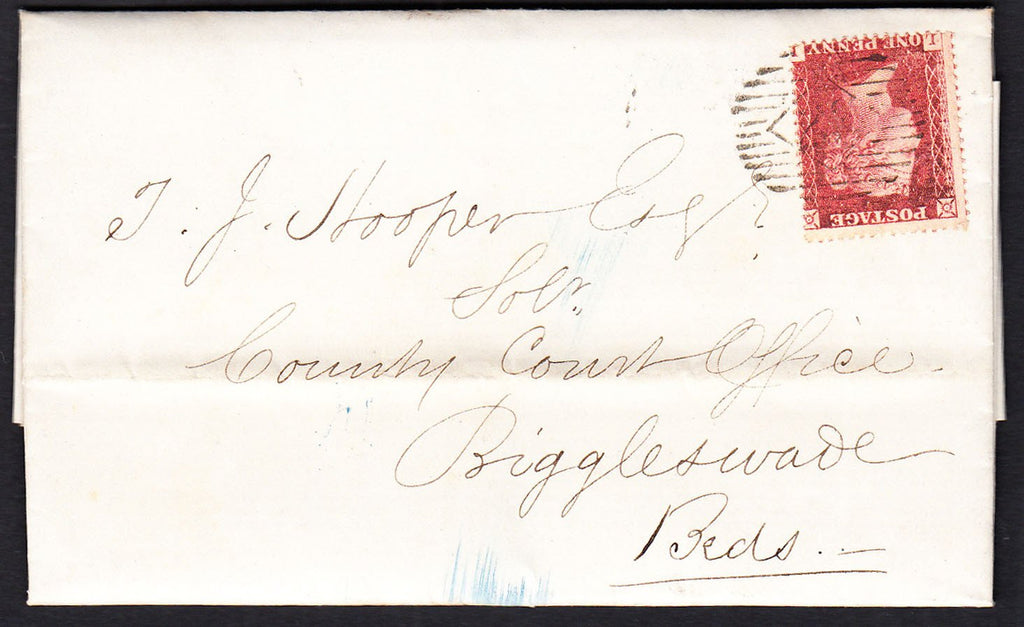 T. J. Hooper Esqr
Solr.
County Court Office.
Biggleswade
Beds. —
POSTAGE
ONE PENNY